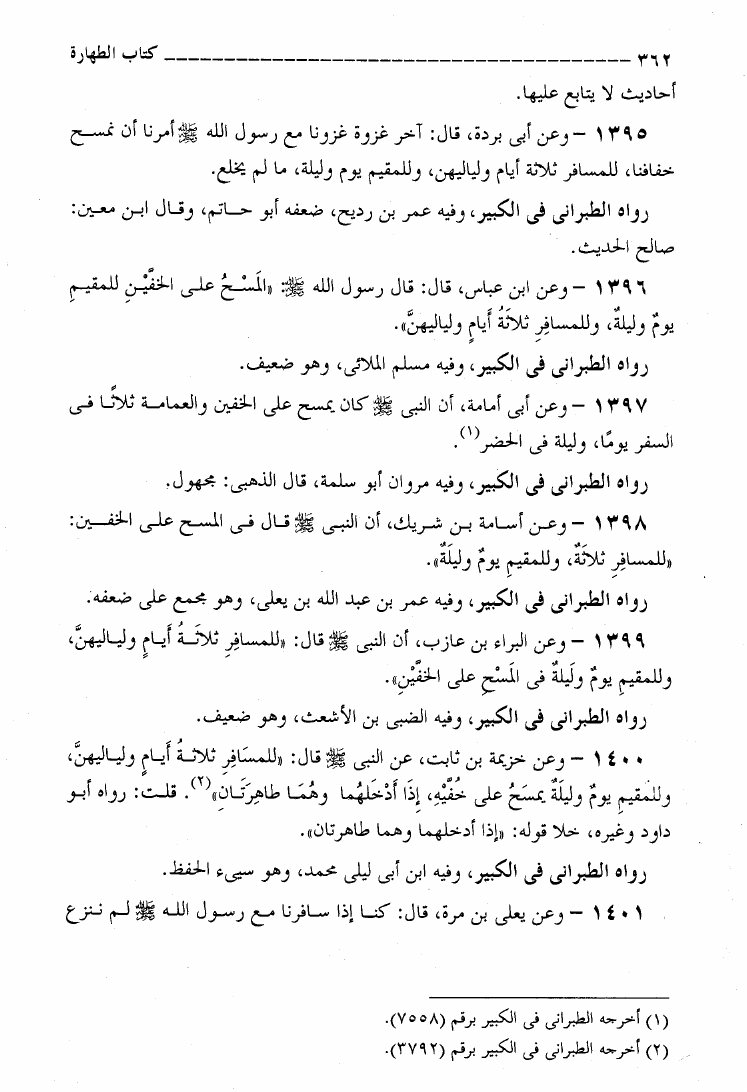 ٣٦٢ ــــــــــــــــــــــــــــــــــــــــــــ كتاب الطهارة
أحاديث لا يتابع عليها.
١٣٩٥ – وعن أبى بردة، قال: آخر غزوة غزونا مع رسول الله ﷺ أمرنا أن نمسح
خفافنا، للمسافر ثلاثة أيام ولياليهن، وللمقيم يوم وليلة، ما لم يخلع.
رواه الطبرانى فى الكبير، وفيه عمر بن رديح، ضعفه أبو حاتم، وقال ابن معين:
صالح الحديث.
١٣٩٦ – وعن ابن عباس، قال: قال رسول الله ﷺ: «المَسْحُ على الخفَّيْنِ للمقيمِ
يومٌ وليلةٌ، وللمسافرِ ثلاثَةُ أيامٍ ولياليهنَّ».
رواه الطبرانى فى الكبير، وفيه مسلم الملائى، وهو ضعيف.
١٣٩٧ – وعن أبى أمامة، أن النبى ﷺ كان يمسح على الخفين والعمامة ثلاثًا فى
السفر يومًا، وليلة فى الحضر(١).
رواه الطبرانى فى الكبير، وفيه مروان أبو سلمة، قال الذهبى: مجهول.
١٣٩٨ – وعن أسامة بن شريك، أن النبى ﷺ قال فى المسح على الخفين:
«للمسافرِ ثلاثَةٌ، وللمقيمِ يومٌ وليلَةٌ».
رواه الطبرانى فى الكبير، وفيه عمر بن عبد الله بن يعلى، وهو مجمع على ضعفه.
١٣٩٩ – وعن البراء بن عازب، أن النبى ﷺ قال: «للمسافرِ ثلاثَةُ أيامٍ ولياليهنَّ،
وللمقيمِ يومٌ ولَيلةٌ فى المَسْحِ على الخفَّيْنِ».
رواه الطبرانى فى الكبير، وفيه الضبى بن الأشعث، وهو ضعيف.
١٤٠٠ – وعن خزيمة بن ثابت، عن النبى ﷺ قال: «للمسَافرِ ثلاثةُ أيامٍ ولياليهنَّ،
وللمقيمِ يومٌ وليلَةٌ يمسَحُ على خُفَّيْهِ، إِذَا أَدْخَلهُما وهُمَا طاهِرَتَان»(٢). قلت: رواه أبو
داود وغيره، خلا قوله: «إذا أدخلهما وهما طاهرتان».
رواه الطبرانى فى الكبير، وفيه ابن أبى ليلى محمد، وهو سيىء الحفظ.
١٤٠١ – وعن يعلى بن مرة، قال: كنا إذا سافرنا مع رسول الله ﷺ لم ننزع
(١) أخرجه الطبرانى فى الكبير برقم (٧٥٥٨).
(٢) أخرجه الطبرانى فى الكبير برقم (٣٧٩٢).